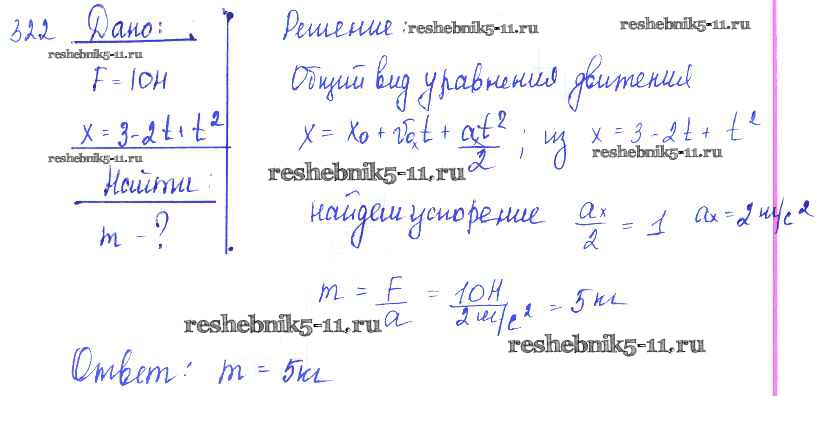 322 Дано:
reshebnik5-11.ru
F = 10Н
x = 3 - 2t + t²
reshebnik5-11.ru
Найти:
m - ?
Решение: reshebnik5-11.ru
reshebnik5-11.ru
Общий вид уравнения движения
x = x₀ + v₀ₓt + aₓt²/2 ; из x = 3 - 2t + t²
reshebnik5-11.ru
reshebnik5-11.ru
найдем ускорение aₓ/2 = 1 aₓ = 2 м/с²
m = F/a = 10Н/2 м/с² = 5 кг
reshebnik5-11.ru
reshebnik5-11.ru
Ответ: m = 5кг